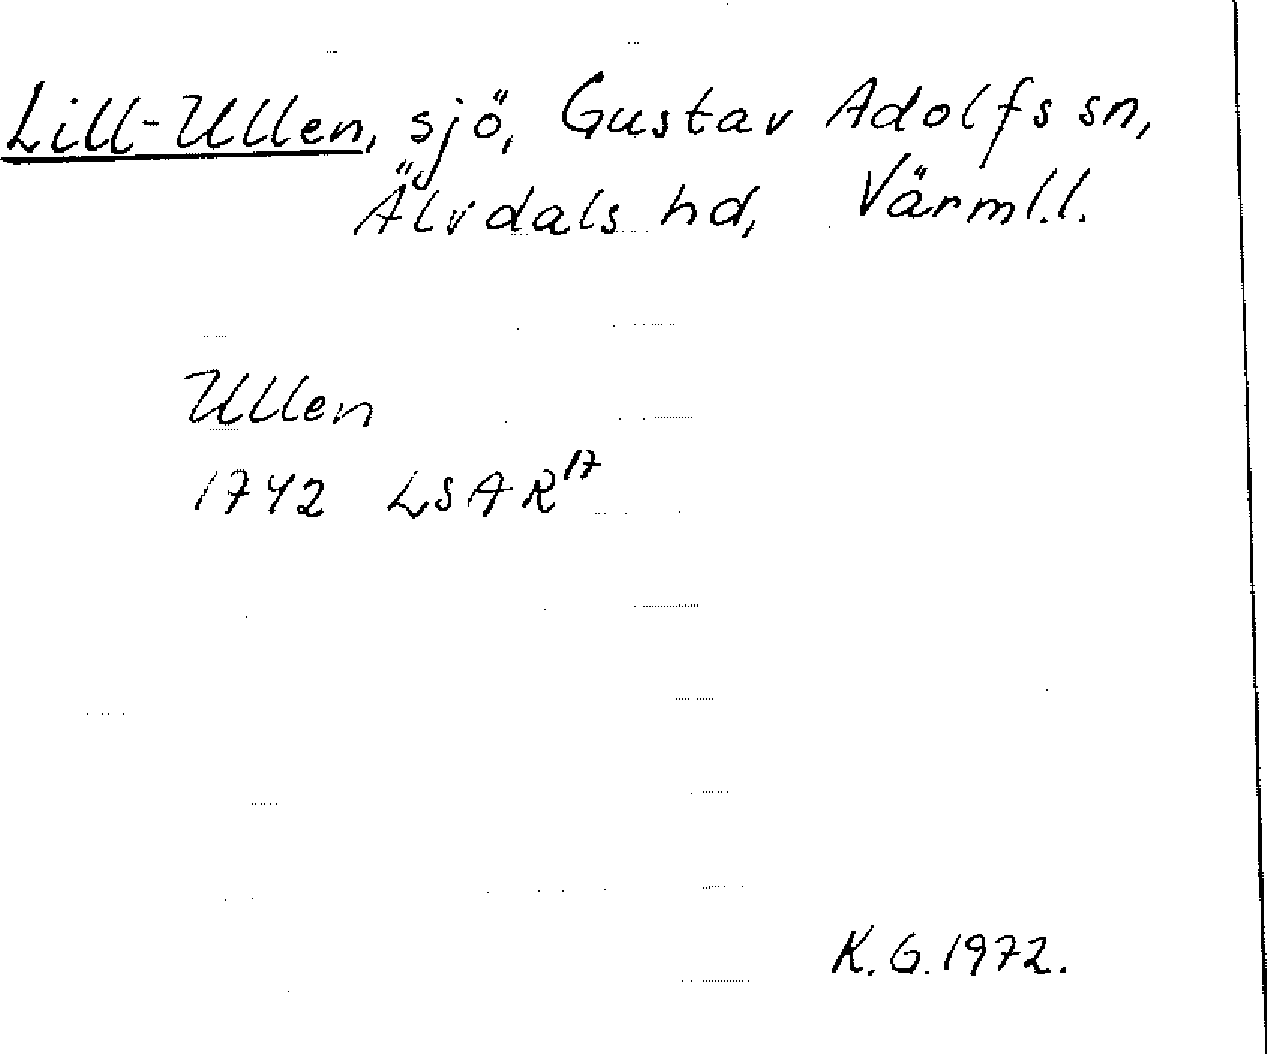 Lill-Ullen, sjö, Gustav Adolfs sn,
Älvdals hd, Värml.l.
Ullen
1742 LSAR17
K.G.1972.